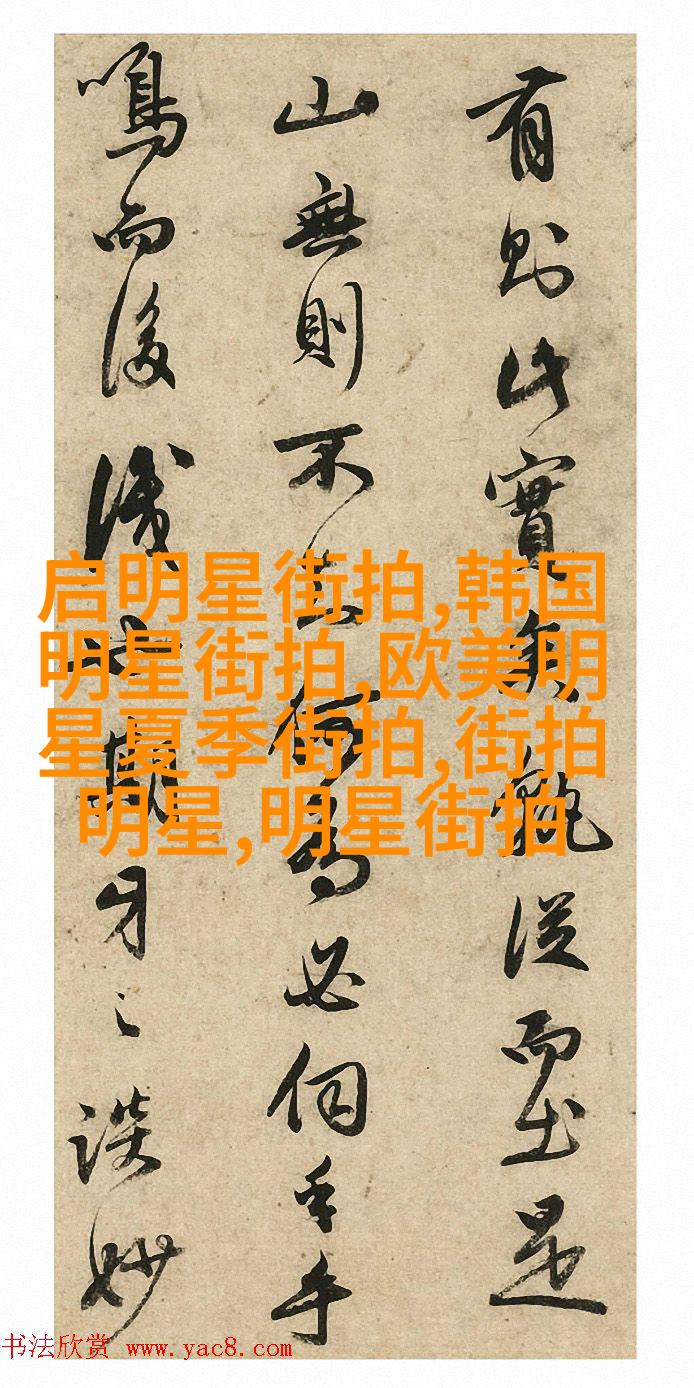 有則此實矣孰從而出是
山無則不何為必伺手乎
鳴而後識牙之談妙
启明星街拍,韩国
明星街拍,欧美明
星夏季街拍,街拍
明星,明星街拍
书法欣赏 www.yac8.com